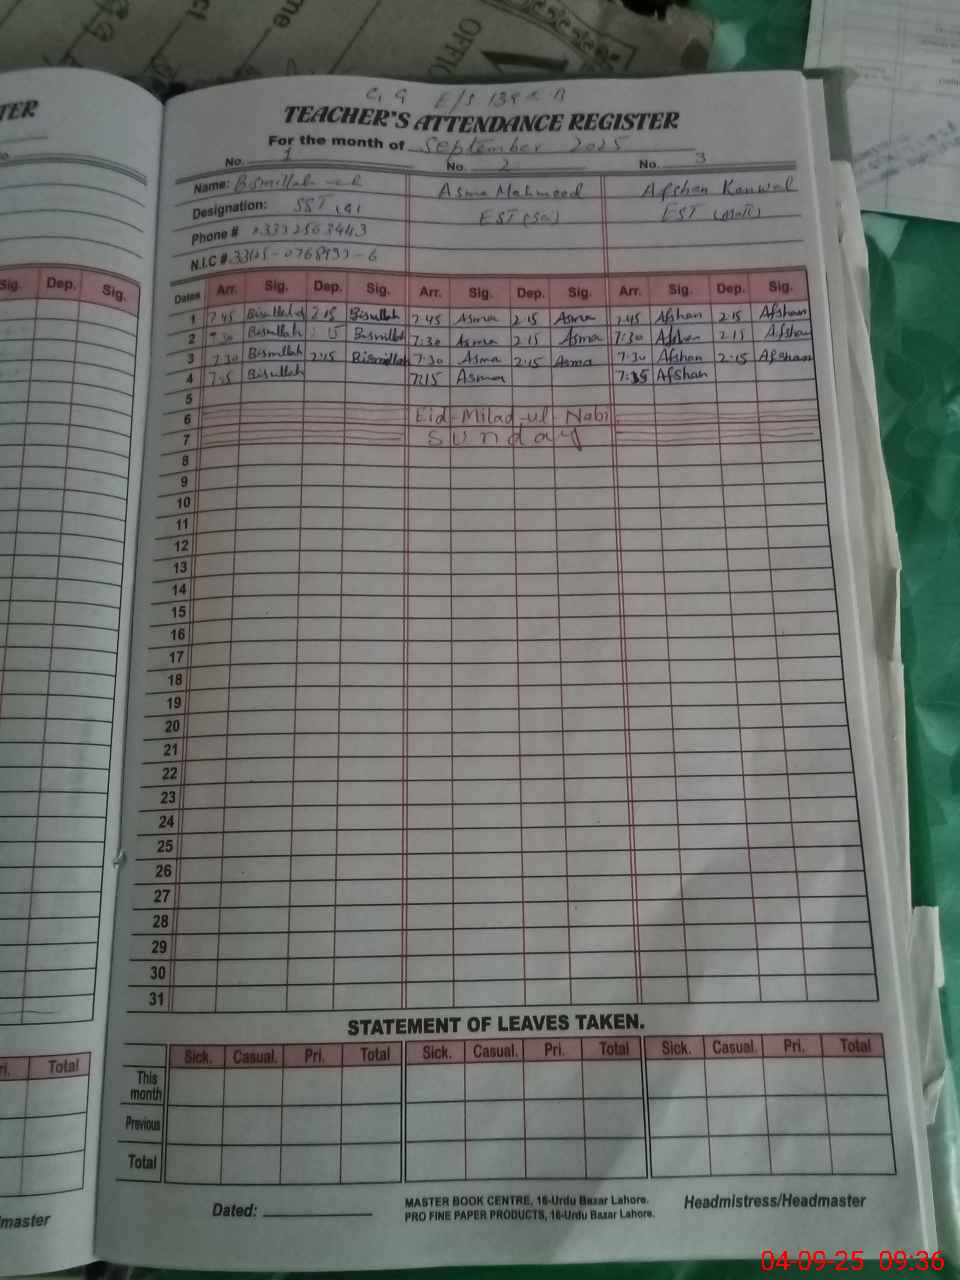 TER
Sig. Dep. Sig.
Total
master
OFFIC
E/S
TEACHER'S ATTENDANCE REGISTER
For the month of September 2025
No. 1 No. 2 No. 3
Name: Bismillah Asma Mahmood Afshan Kanwal
Designation: SST EST (Sci) EST
Phone #
N.I.C #
Dates Arr. Sig. Dep. Sig. Arr. Sig. Dep. Sig. Arr. Sig. Dep. Sig.
1 7.45 Bismillah 2.15 Bismillah 7.45 Asma 2.15 Asma 7.45 Afshan 2.15 Afshan
2 Bismillah 15 Bismillah 7:30 Asma 2.15 Asma 7:30 Afshan 2.15 Afshan
3 7.30 Bismillah 2.15 Bismillah 7.30 Asma 2.15 Asma 7.30 Afshan 2.15 Afshan
4 Bisullah 7:15 Asma Afshan
5
6 Eid-Milad-ul-Nabi
7 Sunday
8
9
10
11
12
13
14
15
16
17
18
19
20
21
22
23
24
25
26
27
28
29
30
31
STATEMENT OF LEAVES TAKEN.
Sick. Casual. Pri. Total Sick. Casual. Pri. Total Sick. Casual. Pri. Total
This month
Previous
Total
Dated: MASTER BOOK CENTRE, 16-Urdu Bazar Lahore. Headmistress/Headmaster
PRO FINE PAPER PRODUCTS, 16-Urdu Bazar Lahore.
04-09-25 09:36